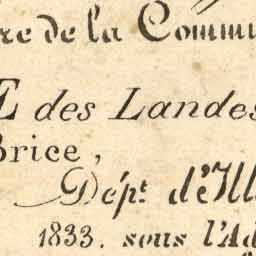 re de la Commu
E des Landes
Brice,
Dép.t d'Ill
1833. sous l'Ad